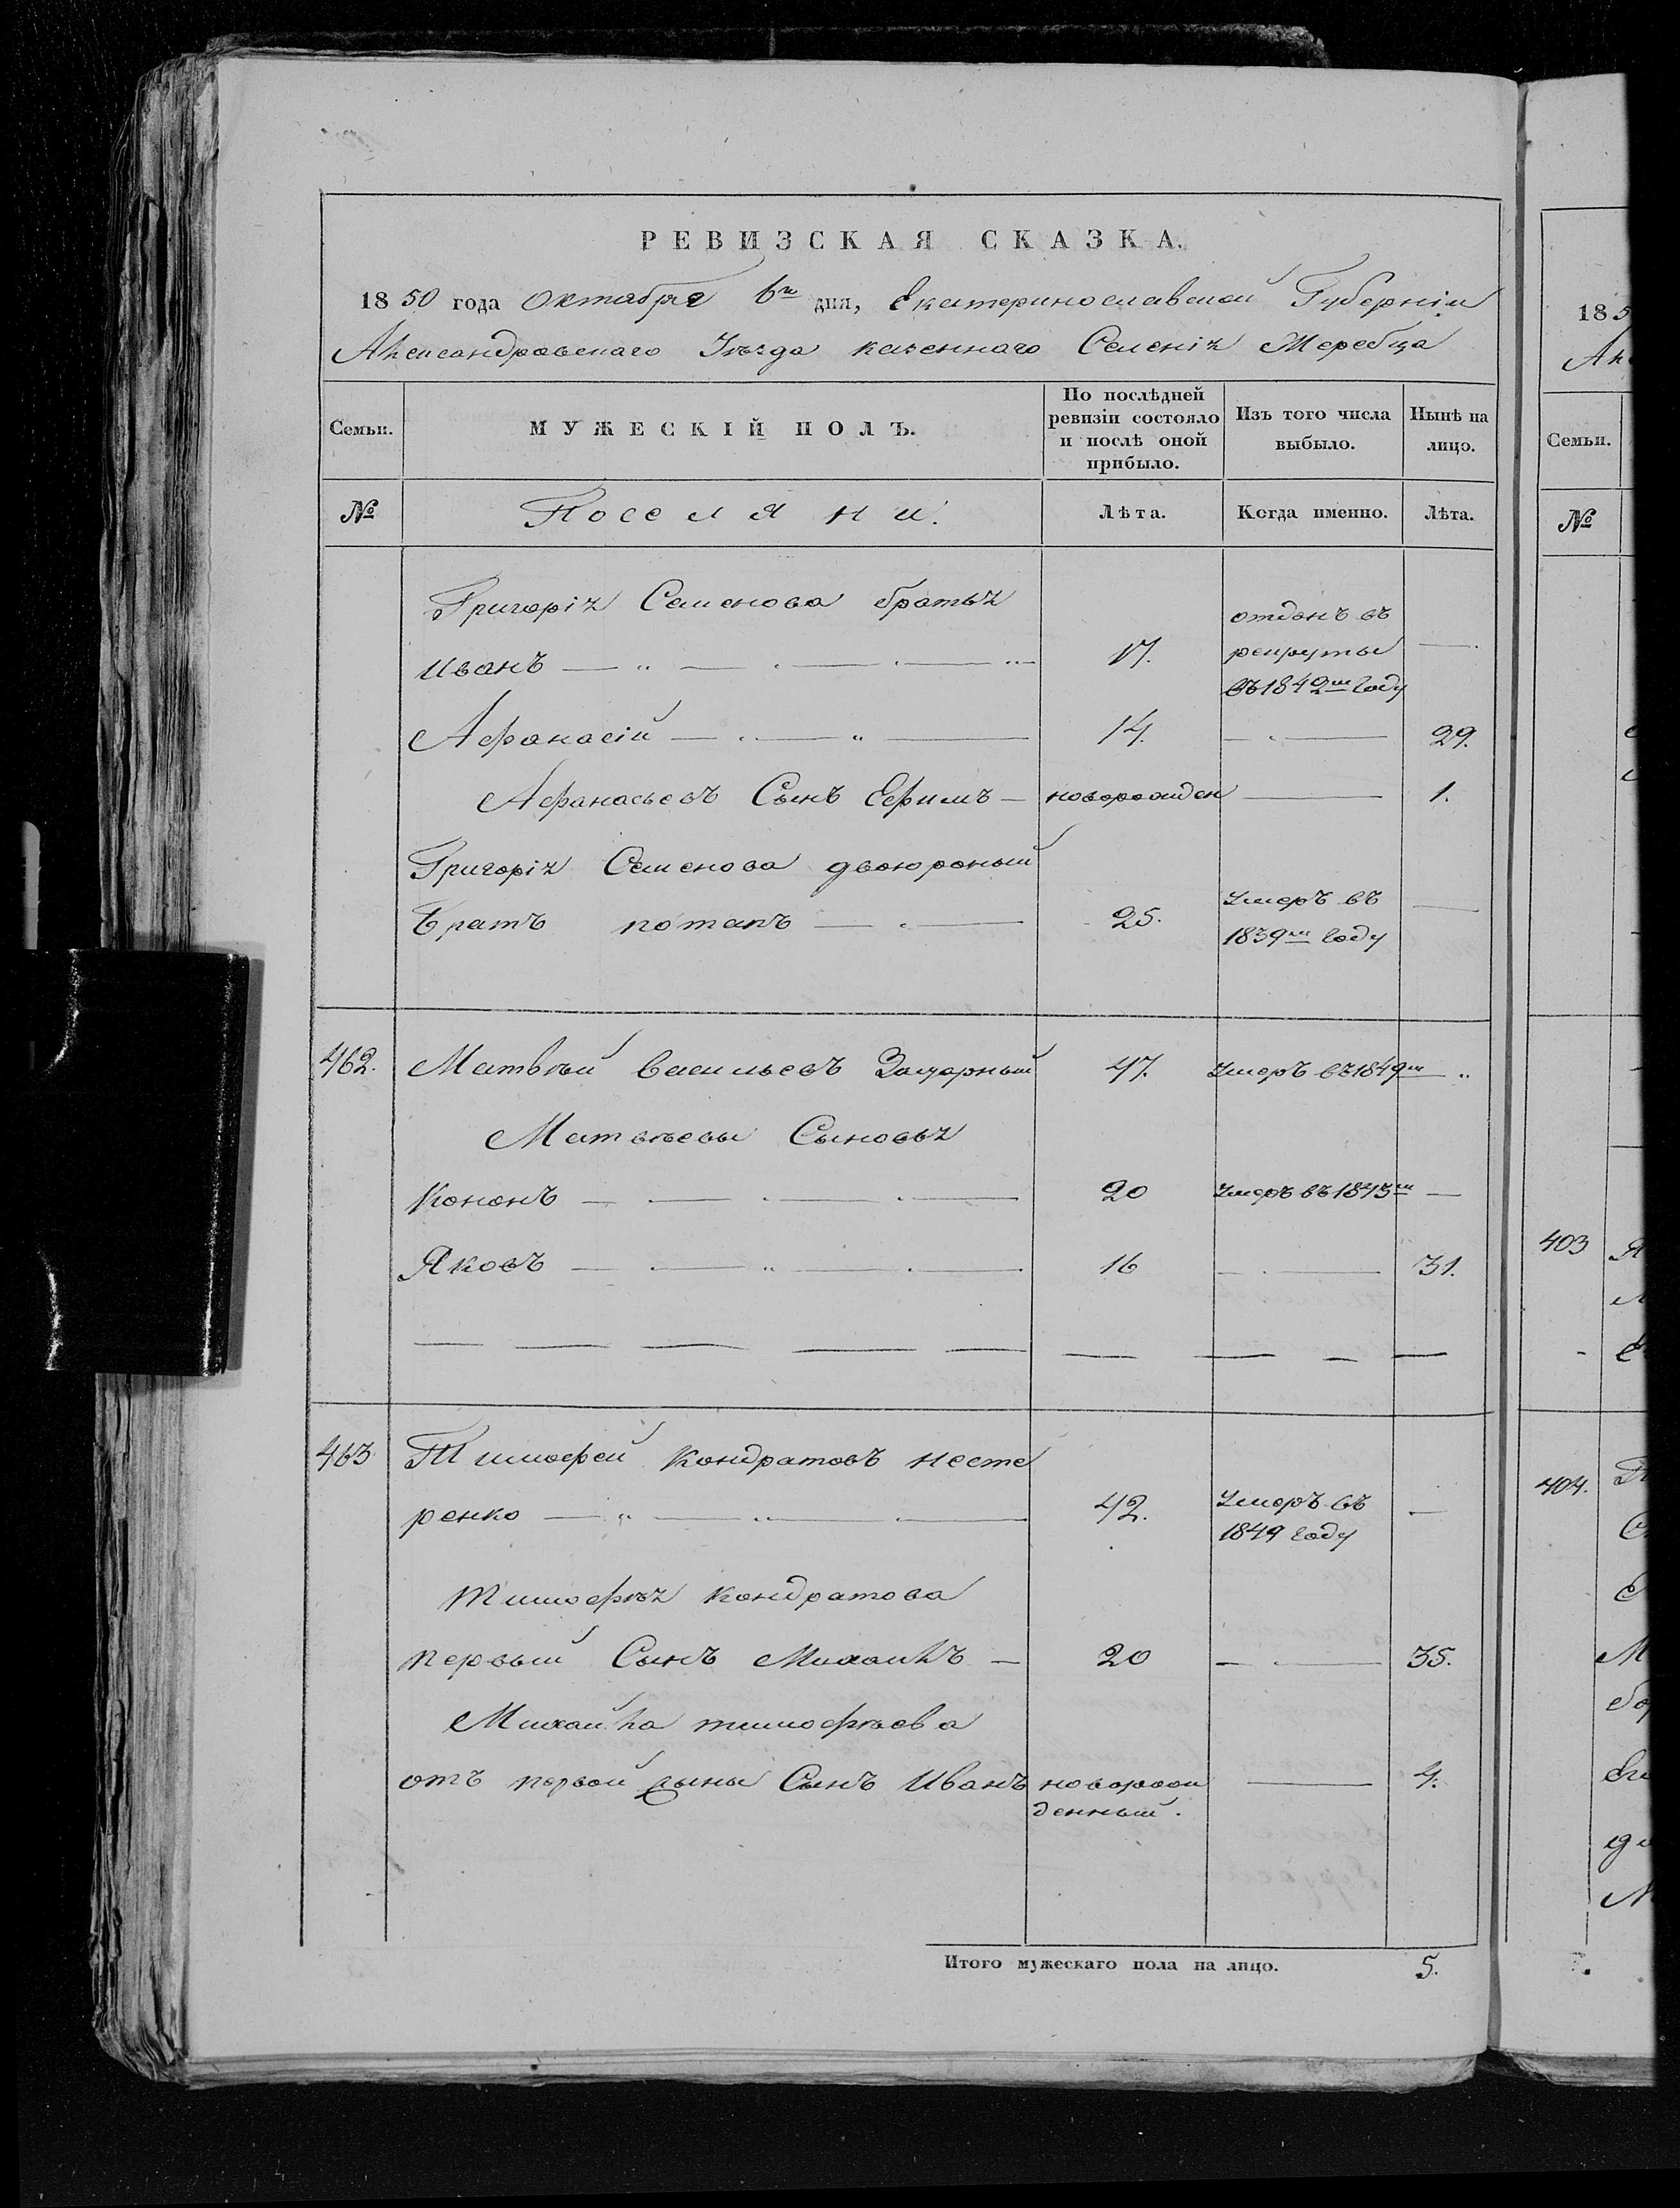 РЕВИЗСКАЯ СКАЗКА.
1850 года Октября 6го дня, Екатеринославской Губернии
Александровскаго Уѣзда казеннаго Селенія Жеребца
Семьи. МУЖЕСКІЙ ПОЛЪ. По послѣдней ревизіи состояло и послѣ оной прибыло. Изъ того числа выбыло. Нынѣ на лицо.
№ Поселяни. Лѣта. Когда именно. Лѣта.
Григорія Семенова братья
Иванъ — 17. отданъ въ рекруты въ 1842м году —
Афанасій — 14. — 29.
Афанасьевъ Сынъ Ефимъ — новорожден — 1.
Григорія Семенова двоюроный
Братъ потапъ — 25. Умеръ въ 1839м году —
462. Матвѣй Васильевъ 47. Умеръ въ 1849м —
Матвѣевы Сыновья
Кононъ — 20 Умеръ въ 1843м —
Яковъ — 16 — 31.
463 Тимофей Кондратовъ несте
ренко — 42. Умеръ въ 1849 году —
Тимофѣя Кондратова
первый Сынъ Михаилъ — 20 — 35.
Михайла тимофѣева
отъ первой жены Сынъ Иванъ новорож
денный. — 4.
Итого мужескаго пола на лицо. 5.
185
Семьи.
№
403
404.